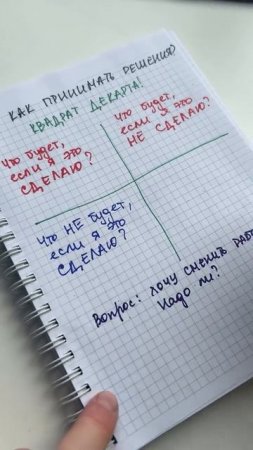 КАК ПРИНИМАТЬ РЕШЕНИЯ?
КВАДРАТ ДЕКАРТА!
Что будет,
если я это
СДЕЛАЮ?
Что будет,
если я это
НЕ СДЕЛАЮ?
Что НЕ будет,
если я это
СДЕЛАЮ?
Вопрос: хочу сменить
надо ли?